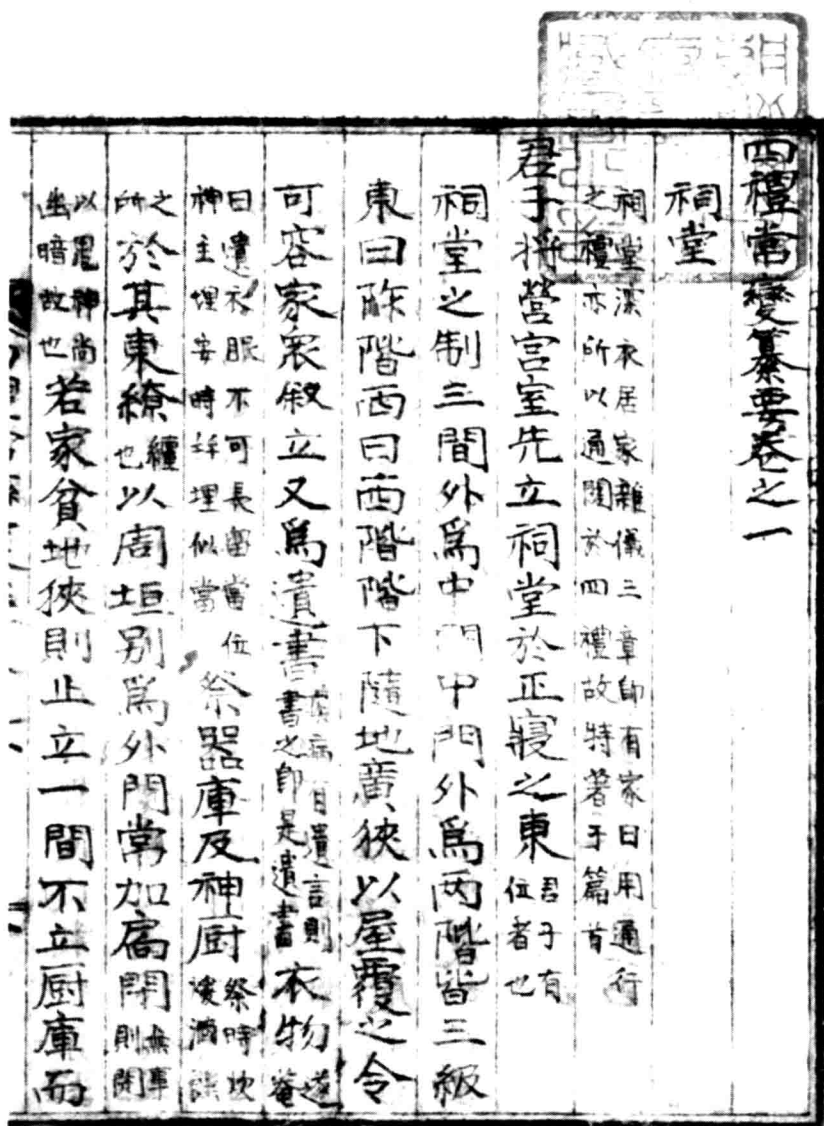 四禮常變纂要卷之一
祠堂
祠堂深衣居家雜儀三章即有家日用通行
之禮亦所以通關於四禮故特著于篇首
君子將營宮室先立祠堂於正寢之東君子有位者也
祠堂之制三間外爲中門中門外爲兩階皆三級
東曰阼階西曰西階階下隨地廣狹以屋覆之令
可容家衆叙立又爲遺書疾病有遺言則書之即是遺書衣物遂菴
曰遺衣服不可長留當位神主埋安時幷埋似當祭器庫及神厨祭時炊煖酒
之所於其東繚纏也以周垣別爲外門常加扃閉無事則閉
以鬼神尚幽暗故也若家貧地狹則止立一間不立厨庫而